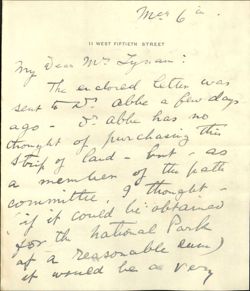 Mar 6th
11 WEST FIFTIETH STREET
My Dear Mr
The enclosed letter was
sent to Dr. Abbe a few days
ago - Dr. Abbe has no
thought of purchasing this
strip of land - but - as
a member of the path
committee, I thought -
if it could be obtained
for the National Park
at a reasonable sum)
it would be a very